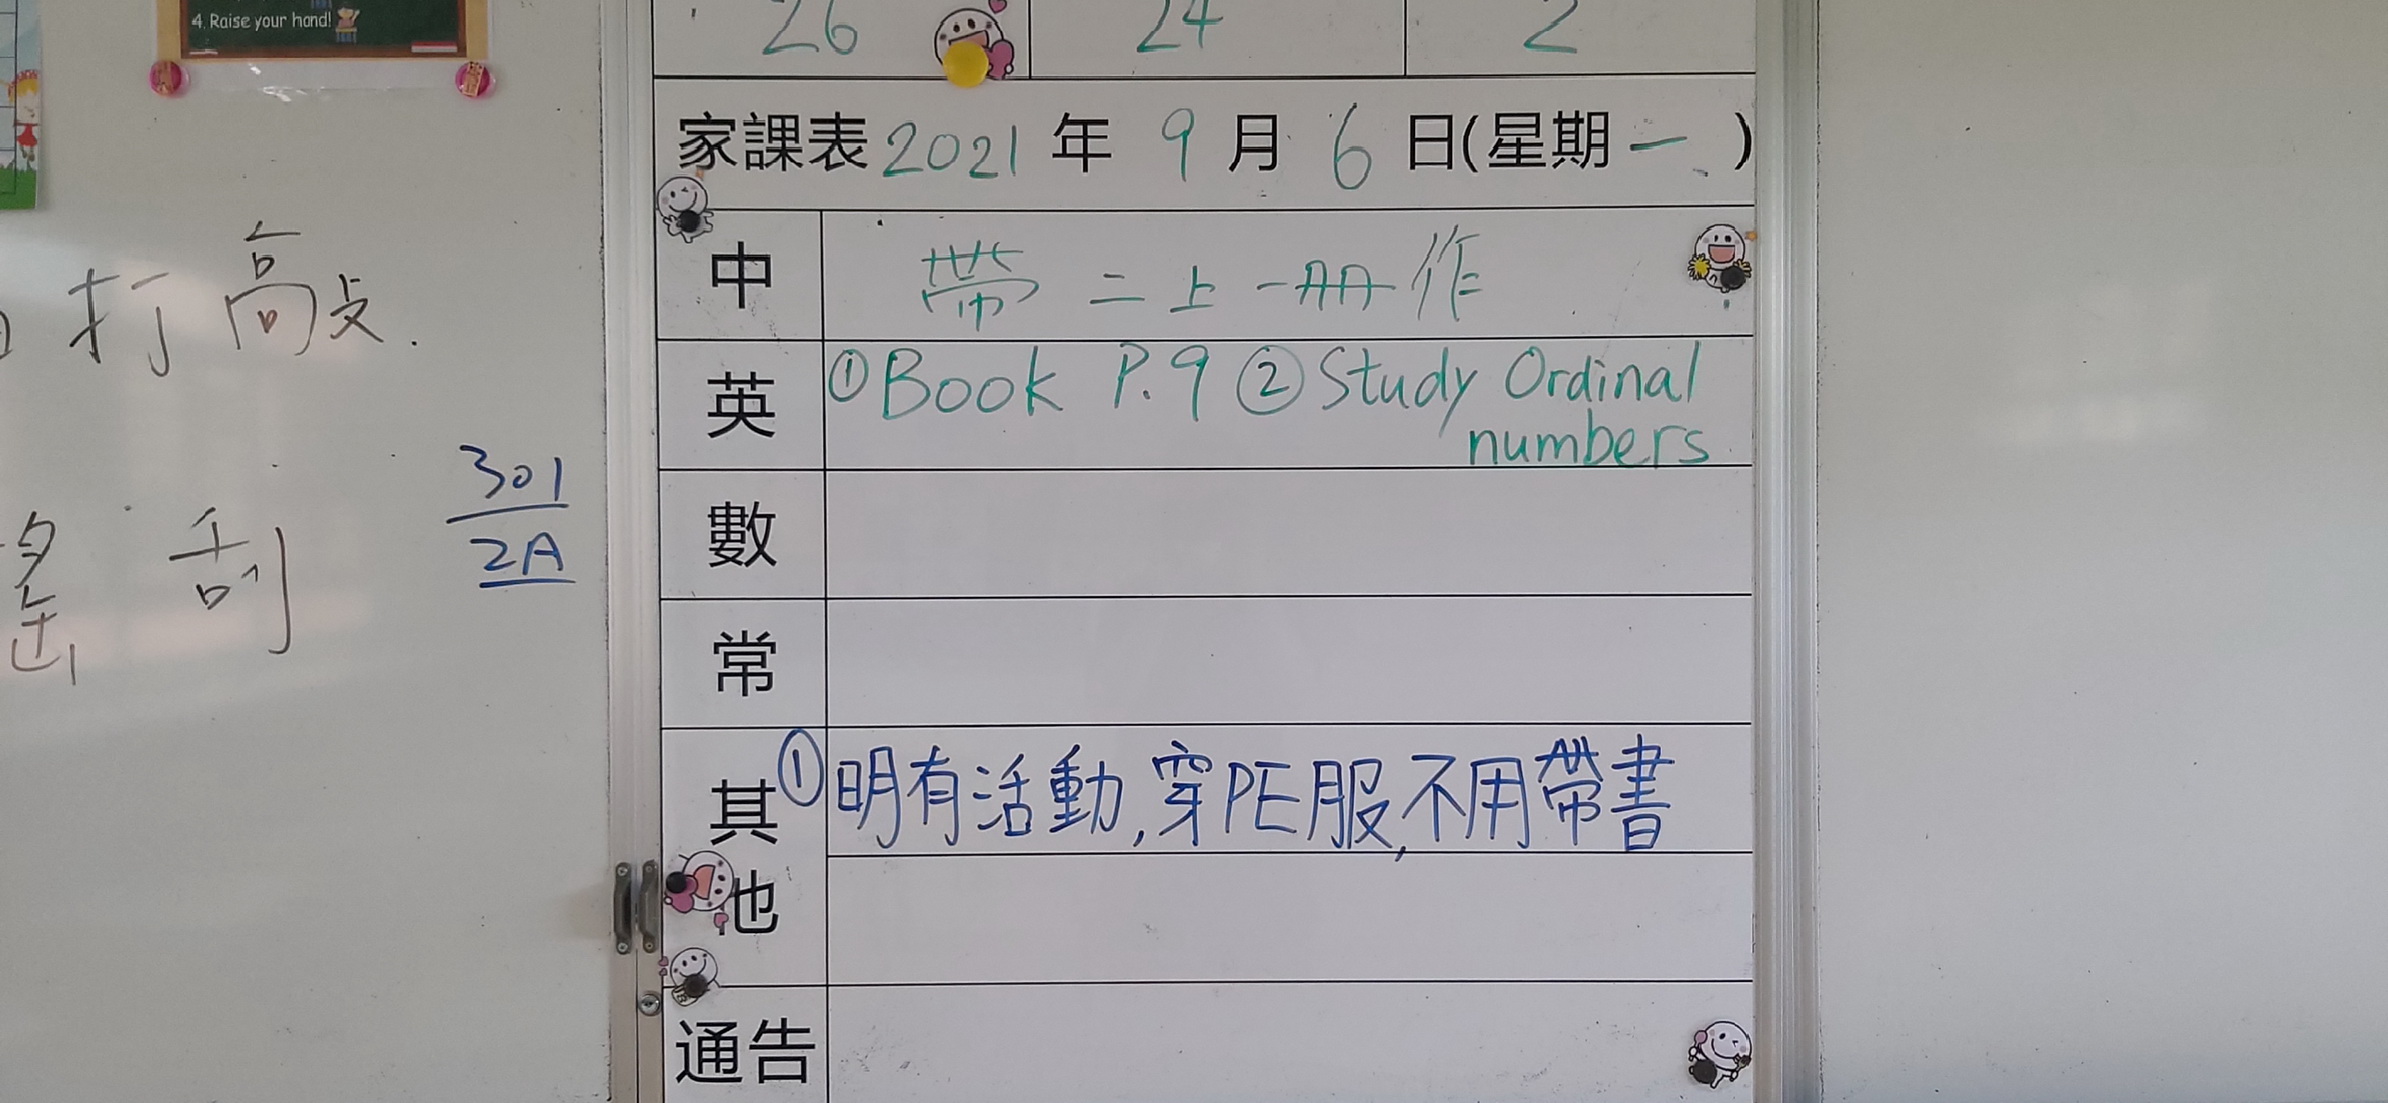 4. Raise your hand!
26 24 2
家課表 2021 年 9 月 6 日(星期一)
打 高
刮
301
2A
中 帶二上一冊作
英 ①Book P.9 ②Study Ordinal
numbers
數
常
其 ①明有活動,穿PE服,不用帶書
也
通告